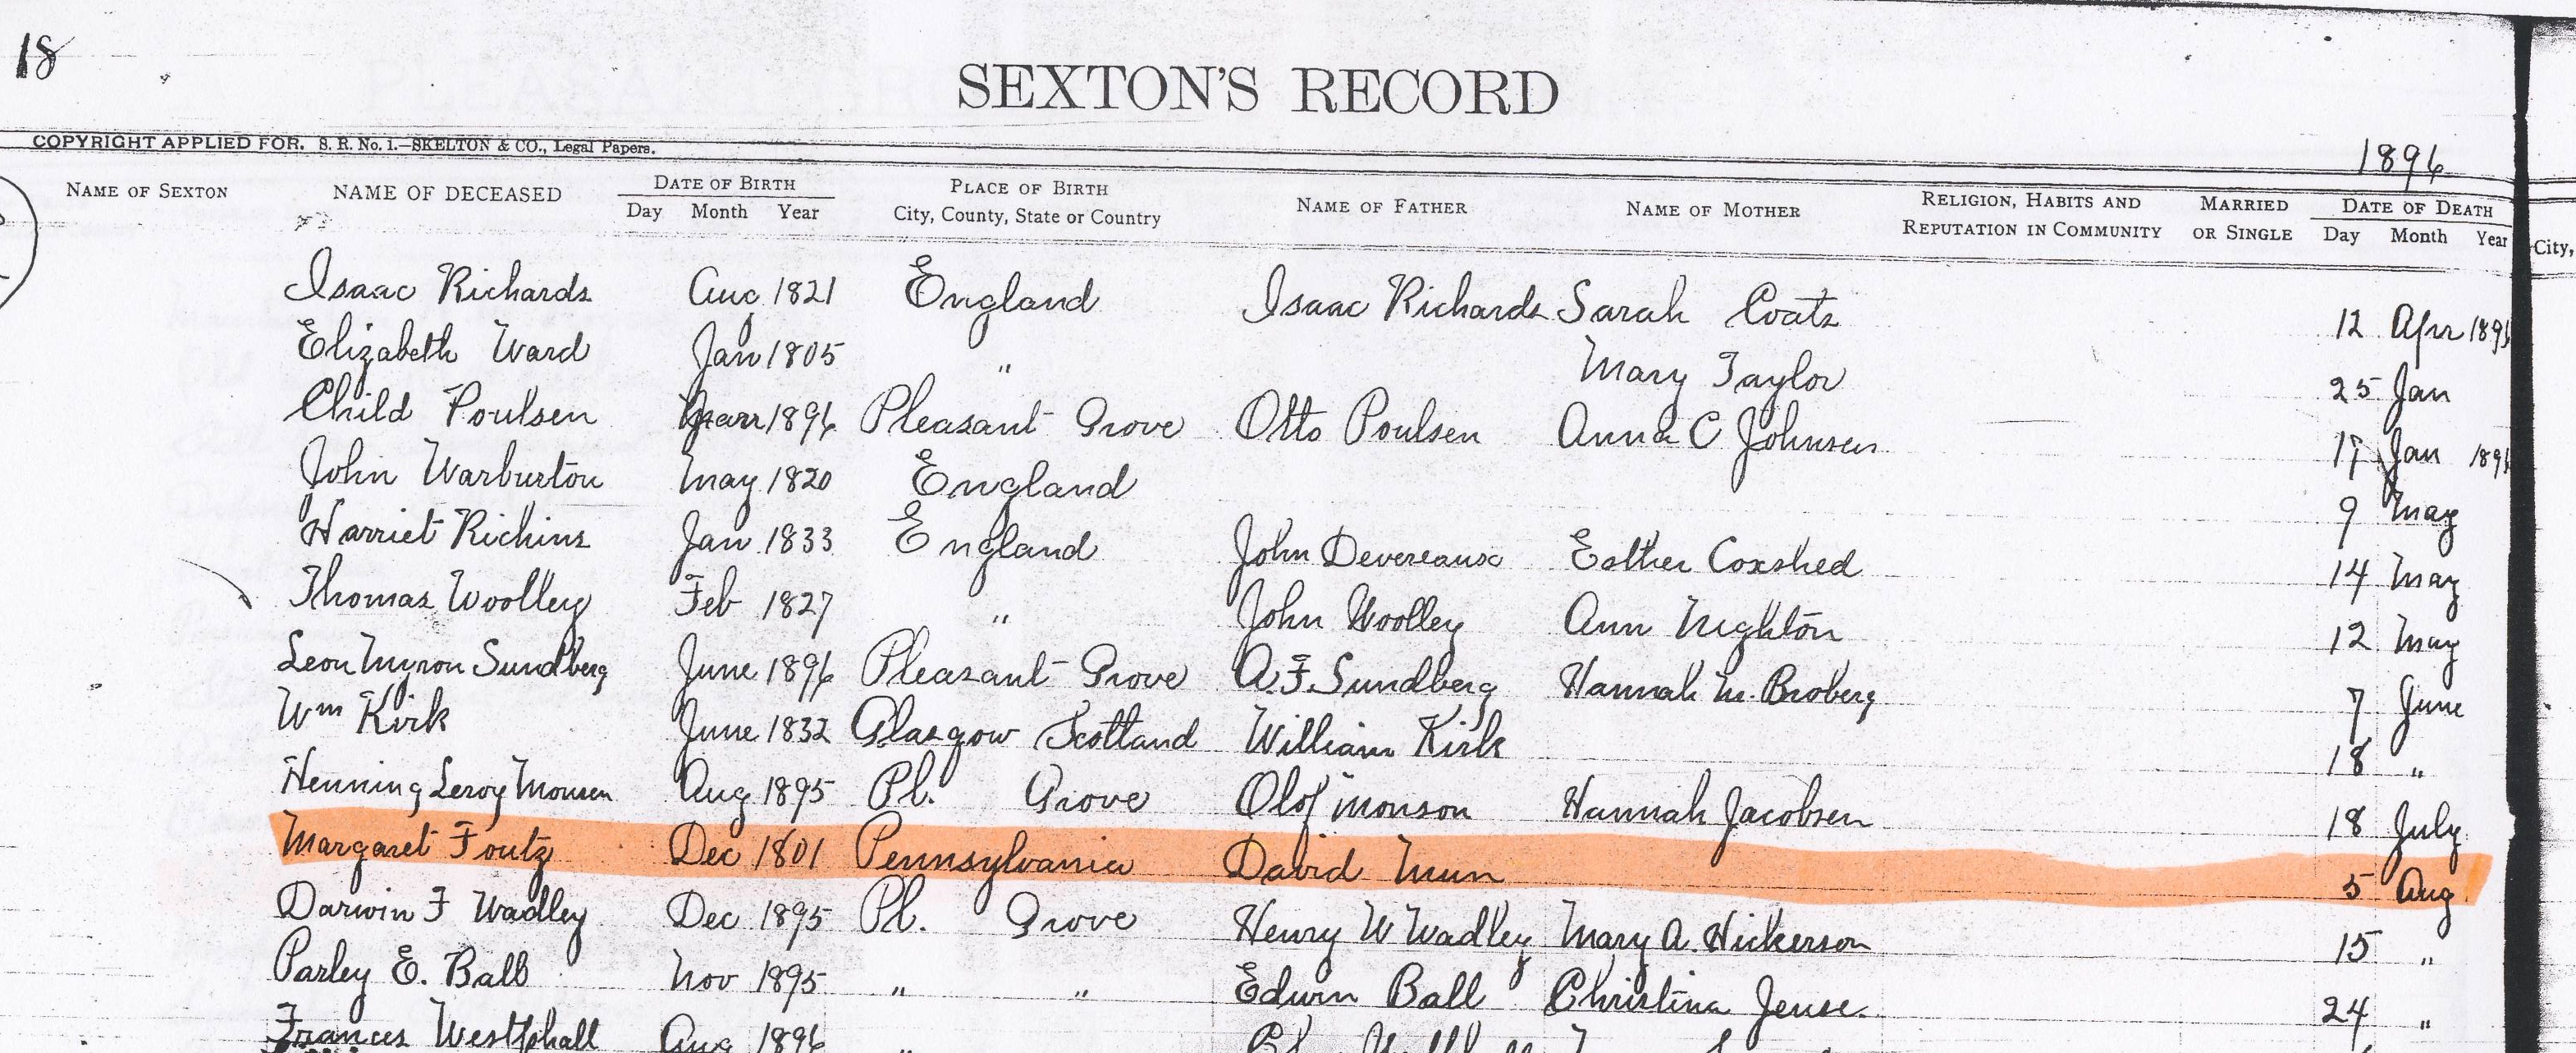 18
SEXTON'S RECORD
COPYRIGHT APPLIED FOR. S. R. No. 1.—SKELTON & CO., Legal Papers.
1896
NAME OF SEXTON NAME OF DECEASED DATE OF BIRTH PLACE OF BIRTH NAME OF FATHER NAME OF MOTHER RELIGION, HABITS AND MARRIED DATE OF DEATH
Day Month Year City, County, State or Country REPUTATION IN COMMUNITY OR SINGLE Day Month Year City,
Isaac Richards Aug 1821 England Isaac Richards Sarah Coats 12 Apr
Elizabeth Ward Jan 1805 " Mary Taylor 25 Jan
Child Poulsen 1896 Pleasant Grove Otto Poulsen Anna C Johnsen 17 Jan
John Warburton May 1820 England 9 May
Harriet Richins Jan 1833 England John Devereaux Esther Coxshed 14 May
Thomas Woolley Feb 1827 " John Woolley Ann 12 May
Leon Myron Sundberg June 1896 Pleasant Grove A. F. Sundberg Hannah M. Broberg 7 June
Wm Kirk June 1832 Glasgow Scotland William Kirk 18 "
Henning Leroy Monsen Aug 1895 Pl. Grove Olof Monson Hannah Jacobsen 18 July
Margaret Foutz Dec 1801 Pennsylvania David Mun 5 Aug
Darwin F Wadley Dec 1895 Pl. Grove Henry W Wadley Mary A. Hickerson 15 "
Parley E. Ball Nov 1895 " " Edwin Ball Christina Jense. 24 "
Frances Westphall Aug 1896 "